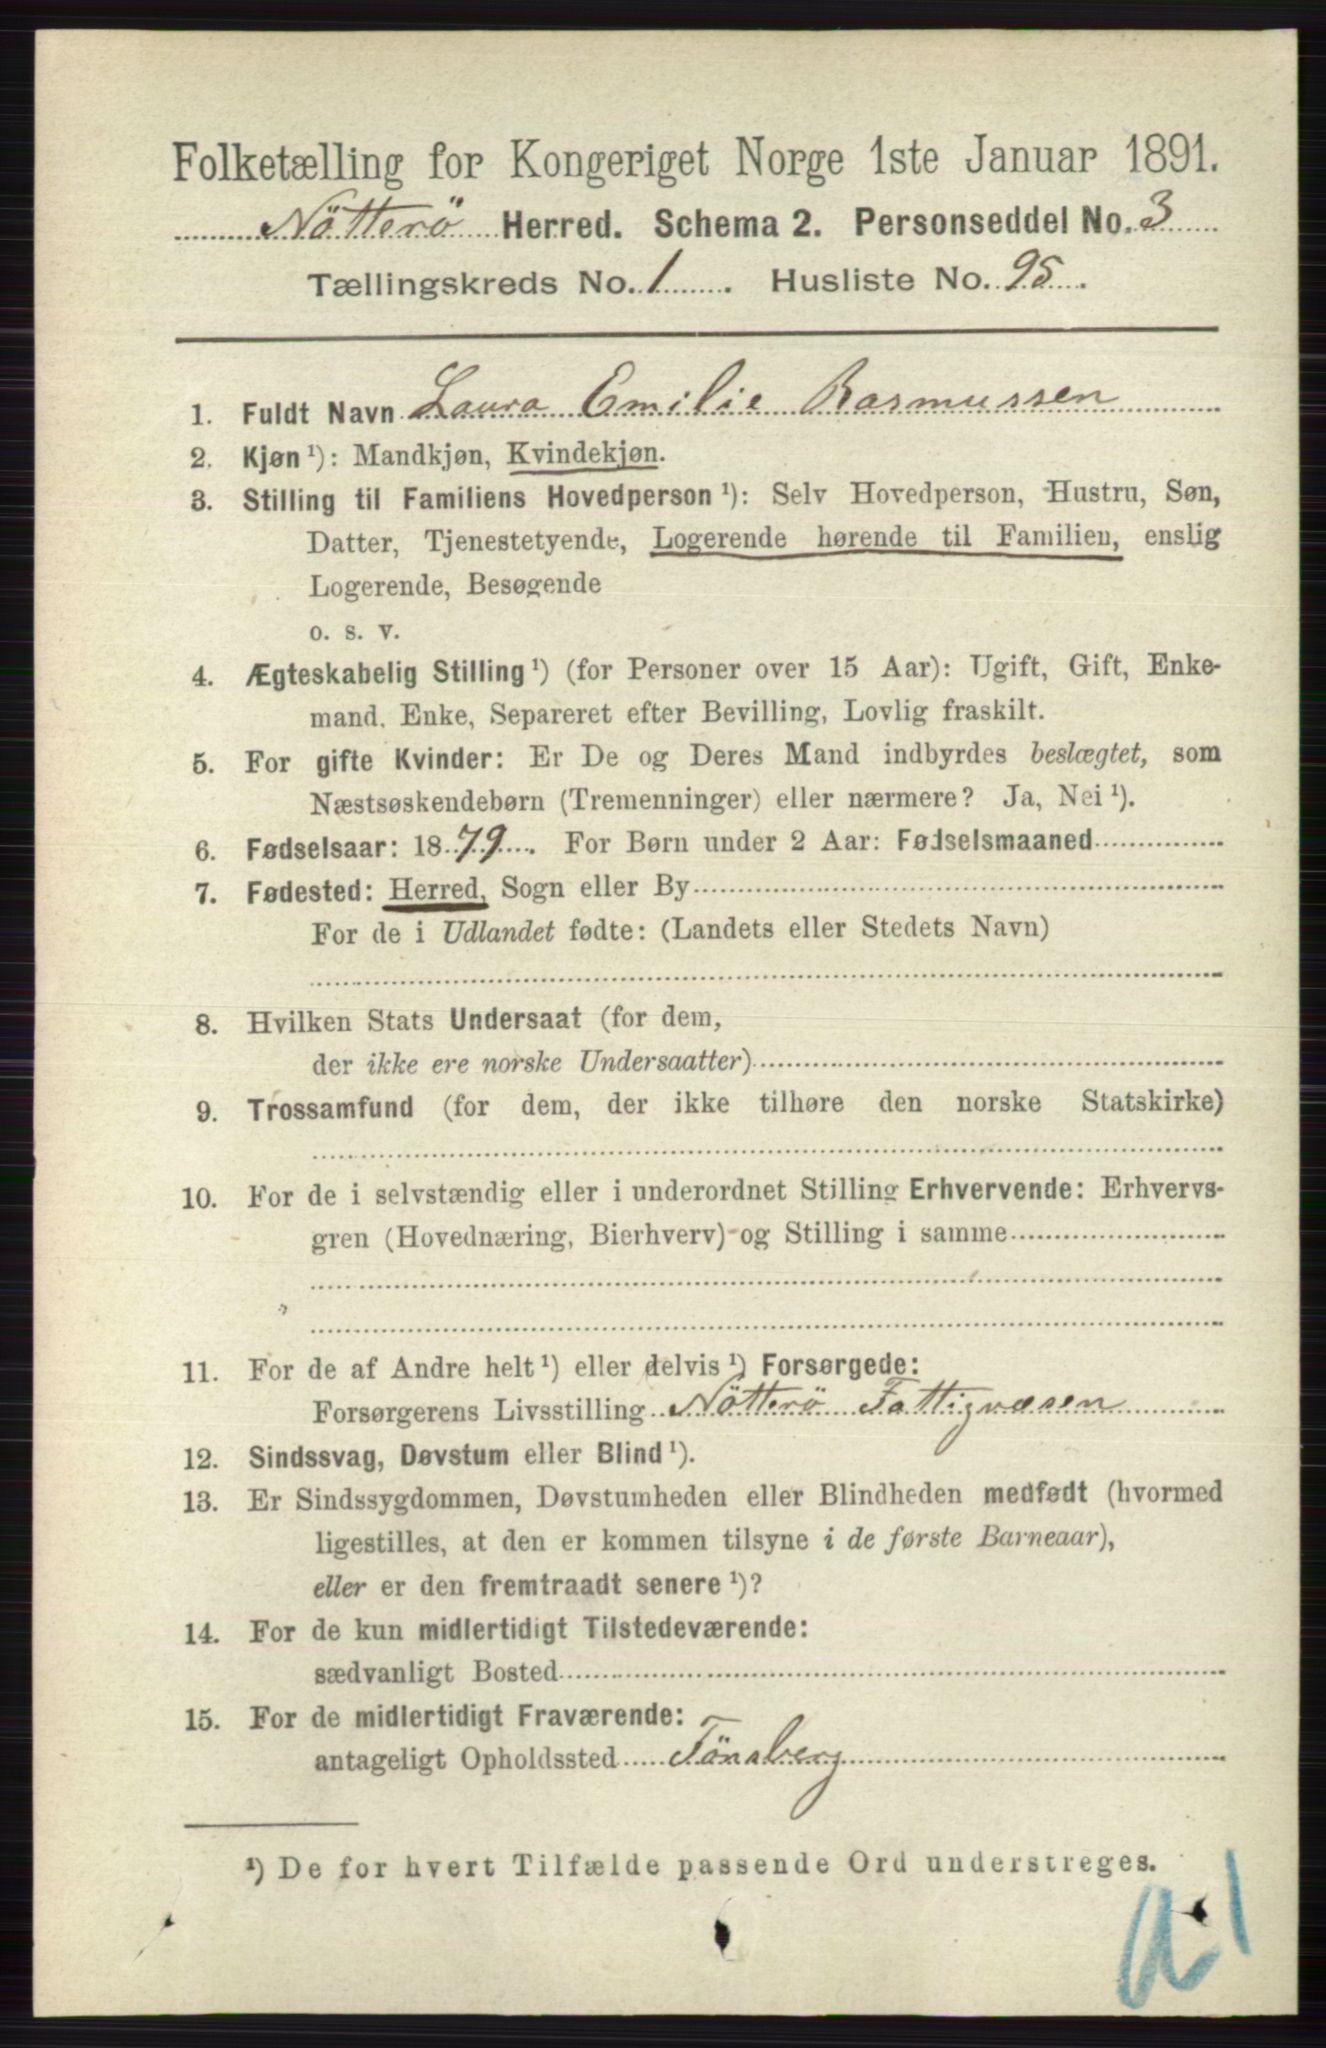 Folketælling for Kongeriget Norge 1ste Januar 1891.
Nötterö Herred. Schema 2. Personseddel No. 3
Tællingskreds No. 1. Husliste No. 95.
1. Fuldt Navn Laura Emilie Rasmussen
2. Kjøn ¹): Mandkjøn, Kvindekjøn.
3. Stilling til Familiens Hovedperson ¹): Selv Hovedperson, Hustru, Søn,
Datter, Tjenestetyende, Logerende hørende til Familien, enslig
Logerende, Besøgende
o. s. v.
4. Ægteskabelig Stilling ¹) (for Personer over 15 Aar): Ugift, Gift, Enke-
mand, Enke, Separeret efter Bevilling, Lovlig fraskilt.
5. For gifte Kvinder: Er De og Deres Mand indbyrdes beslægtet, som
Næstsøskendebørn (Tremenninger) eller nærmere? Ja, Nei ¹).
6. Fødselsaar: 1879. For Børn under 2 Aar: Fødselsmaaned
7. Fødested: Herred, Sogn eller By
For de i Udlandet fødte: (Landets eller Stedets Navn)
8. Hvilken Stats Undersaat (for dem,
der ikke ere norske Undersaatter)
9. Trossamfund (for dem, der ikke tilhøre den norske Statskirke)
10. For de i selvstændig eller i underordnet Stilling Erhvervende: Erhvervs-
gren (Hovednæring, Bierhverv) og Stilling i samme
11. For de af Andre helt ¹) eller delvis ¹) Forsørgede:
Forsørgerens Livsstilling Nötterö Fattigvæsen
12. Sindssvag, Døvstum eller Blind ¹).
13. Er Sindssygdommen, Døvstumheden eller Blindheden medfødt (hvormed
ligestilles, at den er kommen tilsyne i de første Barneaar),
eller er den fremtraadt senere ¹)?
14. For de kun midlertidigt Tilstedeværende:
sædvanligt Bosted
15. For de midlertidigt Fraværende:
antageligt Opholdssted Tönsberg
¹) De for hvert Tilfælde passende Ord understreges.
a 1